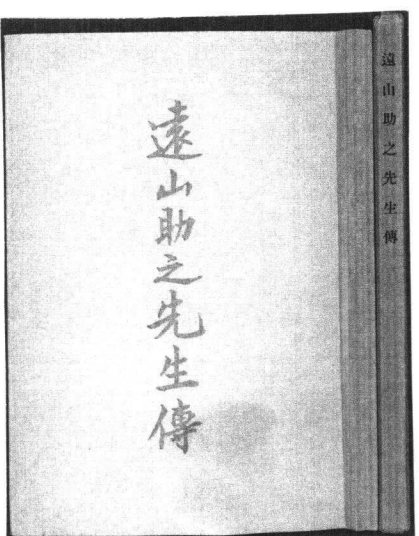 遠山助之先生傳
遠山助之先生傳